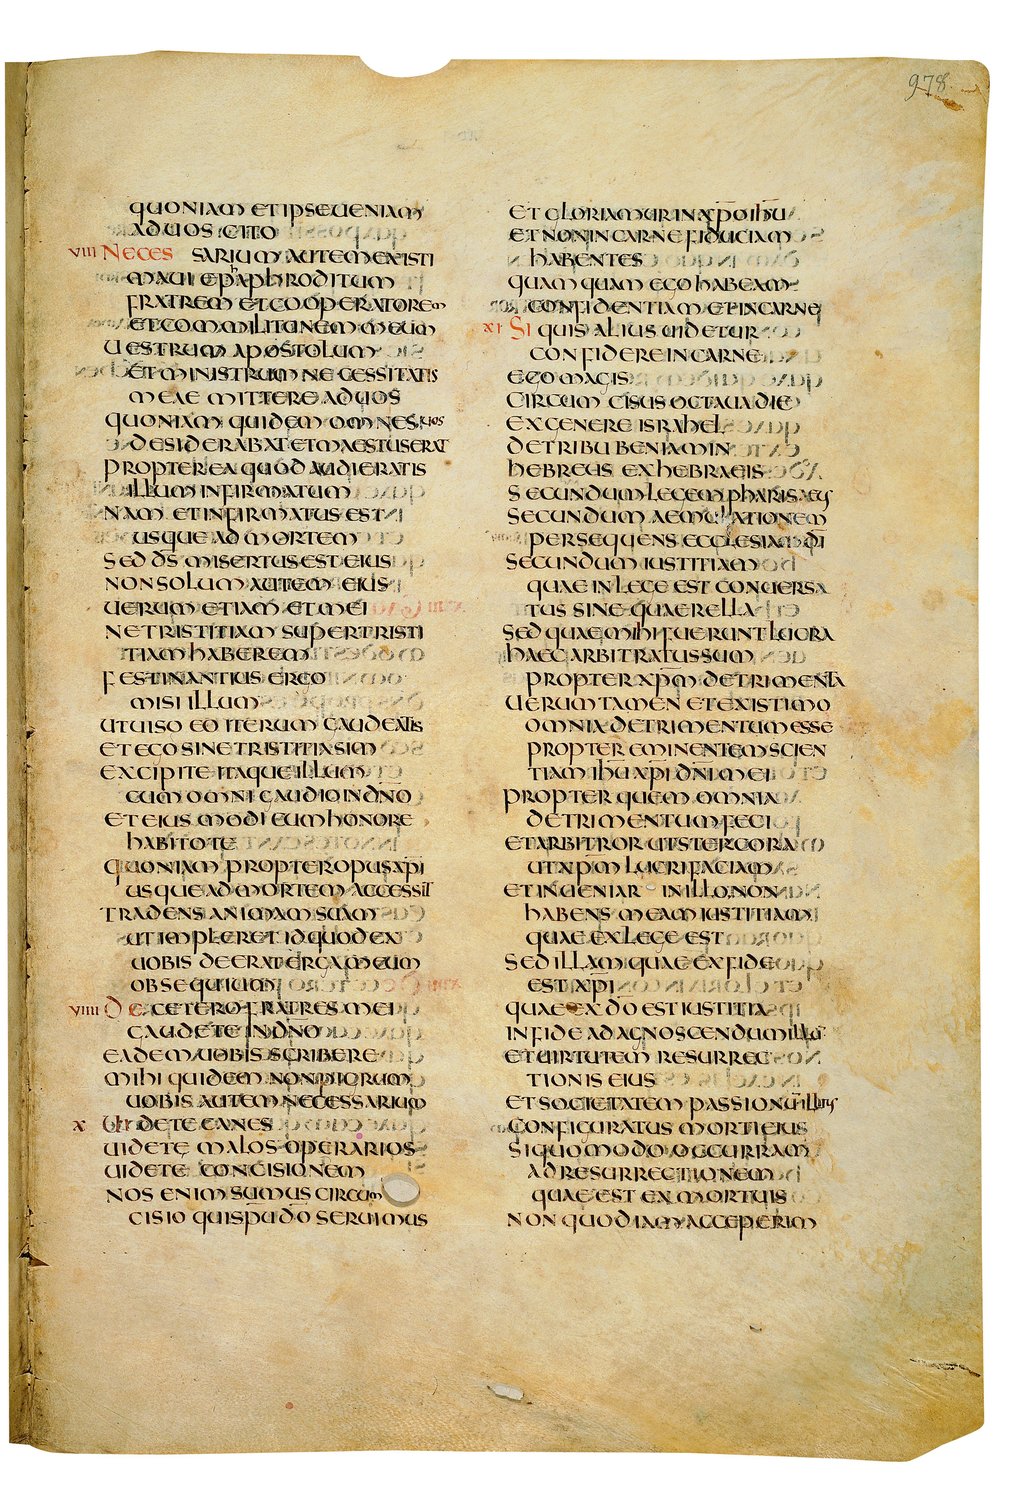 978
quoniam et ipse ueniam
ad uos cito
VIII Neces sarium autem existi
maui epaphroditum
fratrem et cooperatorem
et commilitonem meum
uestrum apostolum
et ministrum necessitatis
meae mittere ad uos
quoniam quidem omnes uos
desiderabat et maestus erat
propterea quod audieratis
illum infirmatum
nam et infirmatus est
usque ad mortem
sed d̅s̅ misertus est eius
non solum autem eius
uerum etiam et mei
ne tristitiam super tristi
tiam haberem
festinantius ergo
misi illum
ut uiso eo iterum gaudeatis
et ego sine tristitia sim
excipite itaque illum
cum omni gaudio in d̅n̅o̅
et eius modi cum honore
habitote
quoniam propter opus x̅p̅i̅
usque ad mortem accessit
tradens animam suam
ut impleret id quod ex
uobis deerat erga meum
obsequium
VIIII De cetero fratres mei
gaudete in d̅n̅o̅
eadem uobis scribere
mihi quidem non pigrum
uobis autem necessarium
X Uidete canes
uidete malos operarios
uidete concisionem
nos enim sumus circum
cisio qui s̅p̅u̅ d̅o̅ seruimus
et gloriamur in x̅p̅o̅ i̅h̅u̅
et non in carne fiduciam
habentes
quam quam ego habeam
confidentiam et in carne
XI Si quis alius uidetur
confidere in carne
ego magis
circumcisus octaua die
ex genere israhel
de tribu beniamin
hebreus ex hebraeis
secundum legem pharisaeus
secundum aemulationem
persequens ecclesiam d̅i̅
secundum iustitiam
quae in lege est conuersa
tus sine quaerella
sed quae mihi fuerunt lucra
haec arbitratus sum
propter x̅p̅m̅ detrimenta
uerum tamen et existimo
omnia detrimentum esse
propter eminentem scien
tiam i̅h̅u̅ x̅p̅i̅ d̅n̅i̅ mei
propter quem omnia
detrimentum feci
et arbitror ut stercora
ut x̅p̅m̅ lucrifaciam
et inueniar in illo non
habens meam iustitiam
quae ex lege est
sed illam quae ex fide
est x̅p̅i̅
quae ex d̅o̅ est iustitia
in fide ad agnoscendum illum
et uirtutem resurrec
tionis eius
et societatem passionum illius
configuratus morti eius
si quo modo occurram
ad resurrectionem
quae est ex mortuis
non quod iam acceperim